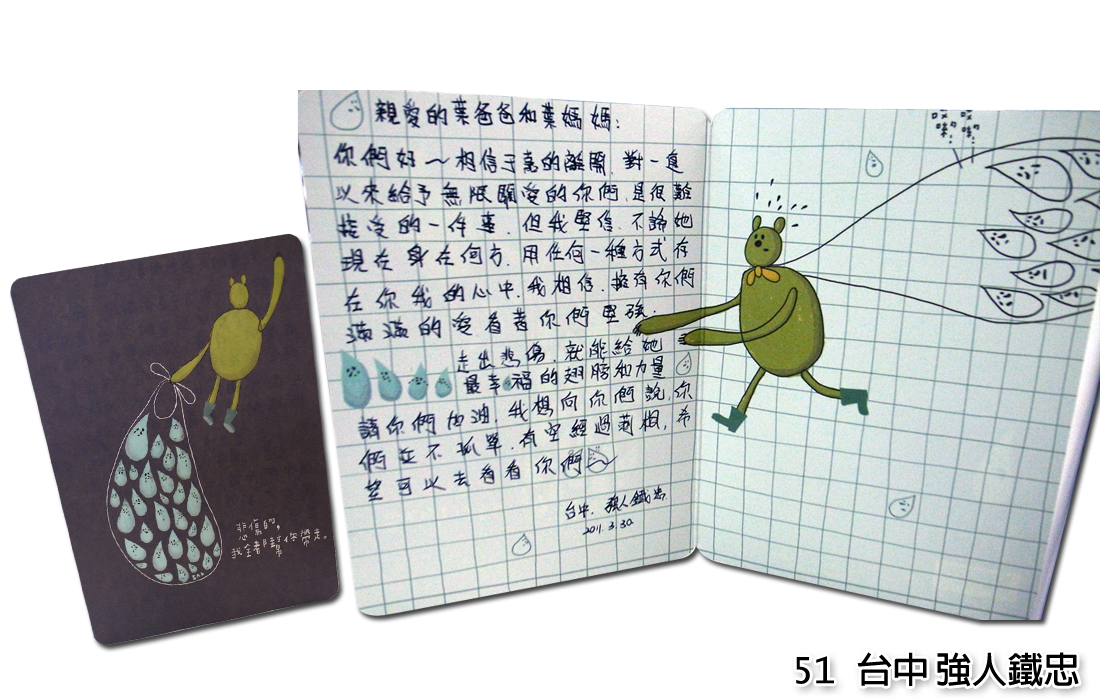 悲傷的,
我全都幫你帶走。
親愛的葉爸爸和葉媽媽:
你們好~相信于萬的離開,對一直
以來給予無限關愛的你們,是很難
接受的一件事,但我堅信,不論她
現在身在何方,用任何一種方式存
在你我的心中,我相信,擁有你們
滿滿的愛看著你們堅強;
走出悲傷,就能給她
最幸福的翅膀和力量
請你們加油,我想向你們說,你
們並不孤單,有空經過莿桐,希
望可以去看看你們
台中. 強人鐵忠
2011.3.30.
51 台中 強人鐵忠